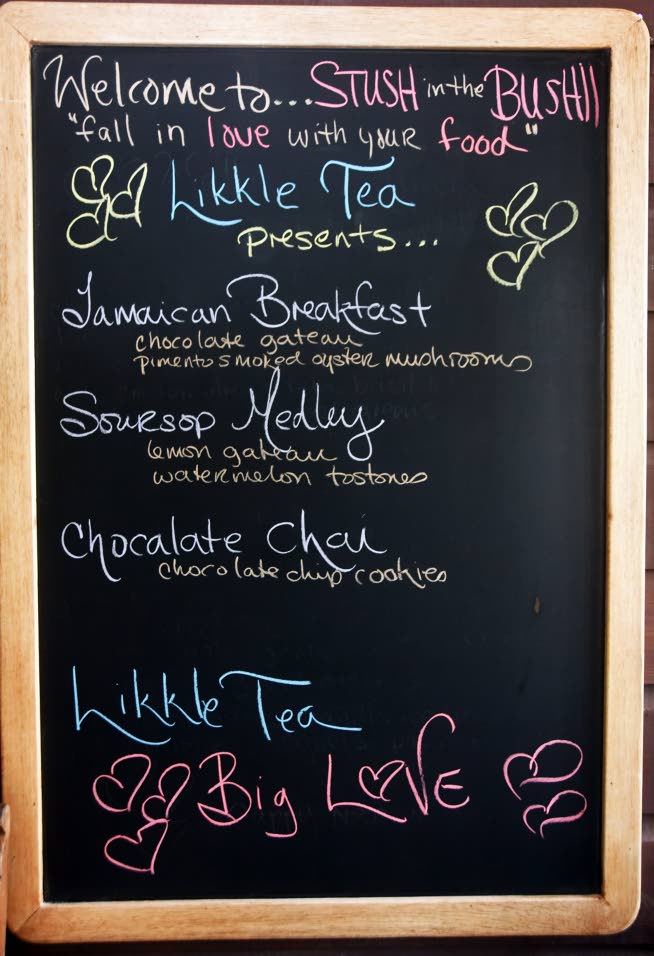 Welcome to...STUSH in the BUSH!!
"fall in love with your food"
Likkle Tea
presents...
Jamaican Breakfast
chocolate gateau
pimento smoked oyster mushrooms
Soursop Medley
lemon gateau
watermelon tostones
Chocalate Chai
chocolate chip cookies
Likkle Tea
Big LOVE